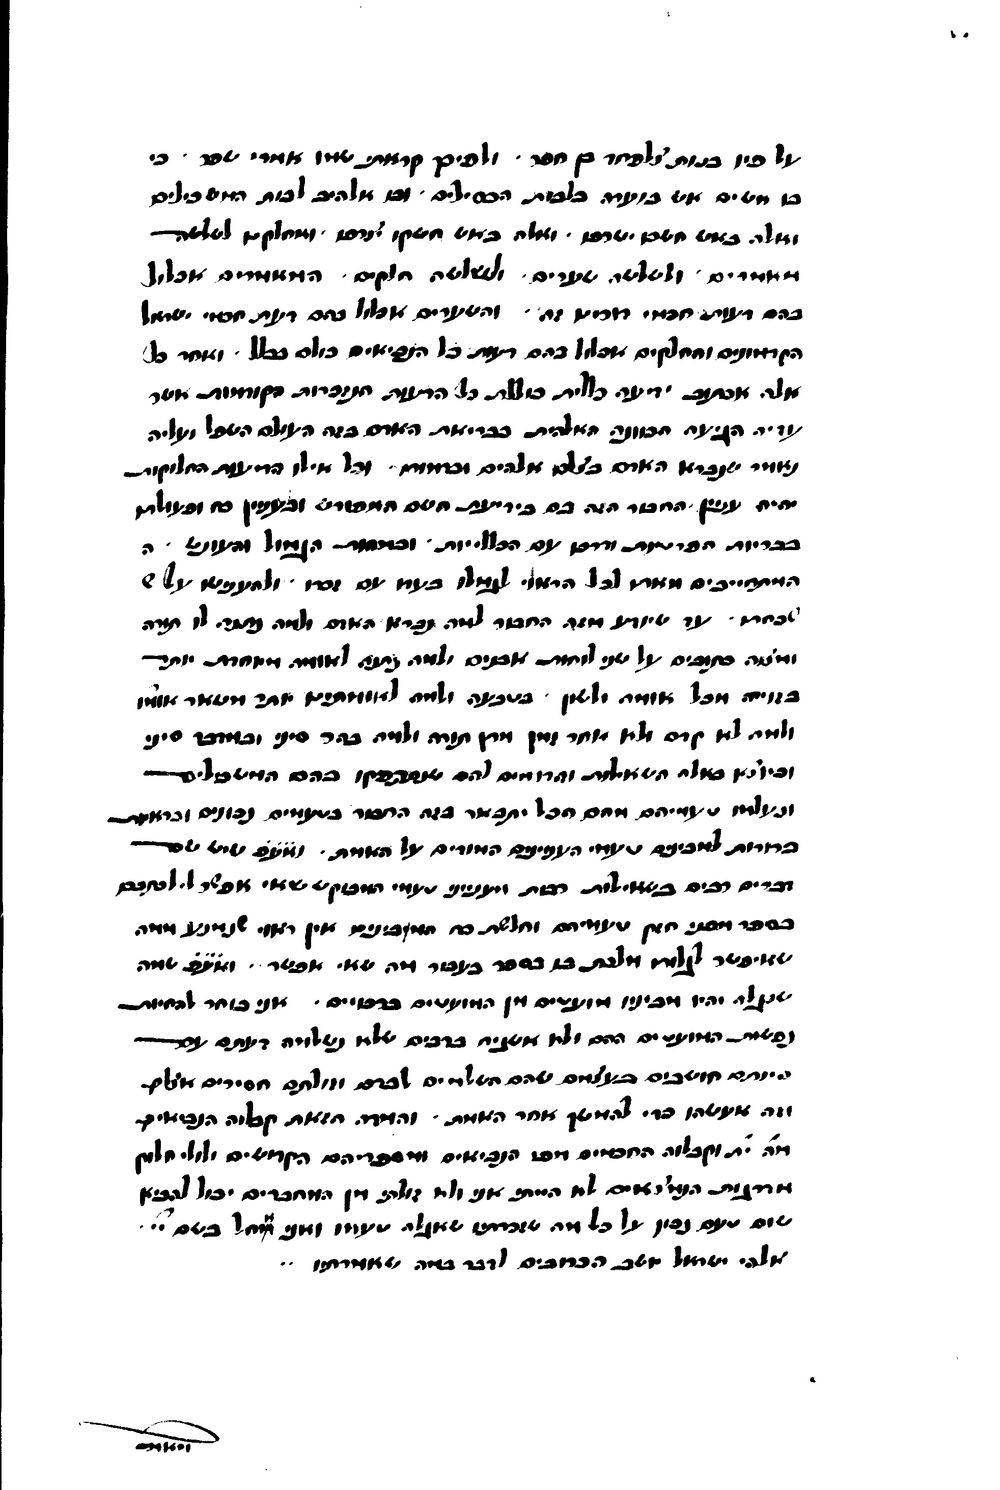 על פיו בנות צלפחד בן חפר · ולפיכך קראתי שמו אמרי שפר · כי
בו משים אש בוערה בלבות הכסילים · ובו אלהים לבות המשכילים
ואלה באש חשבו ישרפו · ואלה באש חשקו יצרפו · ומחלקיו לשלשה
מאמרים · ולשלשה שערים · ולשלשה חלקים · המאמרים אכלול
בהם דעות חכמי · והשערים אכלול בהם דעת חכמי ישראל
הקדמונים והחלקים אכלול בהם דעות כל הנביאים כולם בכלל · ואחר כל
אלה אכתוב ידיעה כללית כוללת כל הדעות הנזכרות הקודמות אשר
עדיה הגיעה הכוונה האלהית בבריאת האדם בזה העולם השפל ועליה
נאמר שנברא האדם בצלם אלהים וכדמות · וכל אילו הדיעות החלוקות
יהיה עניין החבור הזה בם בידיעת השם המפורש ובעניין כח ופעולתו
בבריות הפרטיות ודינו עם הכלליות · ובמהות הגמול והעונש · ה
המתחייבים מאתו לכל הראוי לגמלו בעתו עם זכותו · ולהענישו על ש
שבחרו · עד שיודע מזה החבור למה נברא האדם ולמה נתנה לו תורה
ומצוה כתובים על שני לוחות אבנים ולמה נתנה לאומה מיוחדת יותר
בגזירה מכל אומה ולשון · בטבעה ולמה לאומתינו יותר משאר אומו
ולמה לא קדם ולא אחר זמן מתן תורה ולמה בהר סיני ובמדבר סיני
וכיוצא באלה השאילות והדומים להם שנסתפקו בהם המשכילים
ונעלמו טעמיהם מהם הכל יתבאר בזה החבור בטעמים נכונים ובראיות
ברורות למבינים טעמי העניינים המורים על האמת · ואע״פ שיש שם
דברים רבים בשאילות רבות ויענייני טעמי המבוקש שאי אפשר לי לכתבם
בספר מפני חזק טעמיהם וחלשת כח המבינים אין ראוי שנמנע ממה
שאיפשר לגלותו מלכתבו בספר בעבור מה שאי אפשר · · ואע״פ שמה
שנגלה יהיו מבינין מועטים מן המועטים ברבויים · אני בוחר להחיות
נפשות המועטים ההם ולא אשגיח ברבים שלא נשלמה דעתם עם
היותם חושבים בעצמם שהם השלמים לבדם וזולתם חסירים אצלם
וזה אעשהו כדי להמשך אחר האמת · והמדה הזאת קבלוה הנביאים
מה״ ית׳ וקבלוה החכמים מפי הנביאים ומספריהם הקדושים ולולי חלוק
מדרגות הנמצאים לא הייתי אני ולא זולתי מן המחברים יכול להביא
שום טעם נכון על כל מה שזכרתנו שאגלה טעמו ואני אחל בשם ייי ·
אלהי ישראל יושב הכרובים לדבר במה שאמרתיו · ·